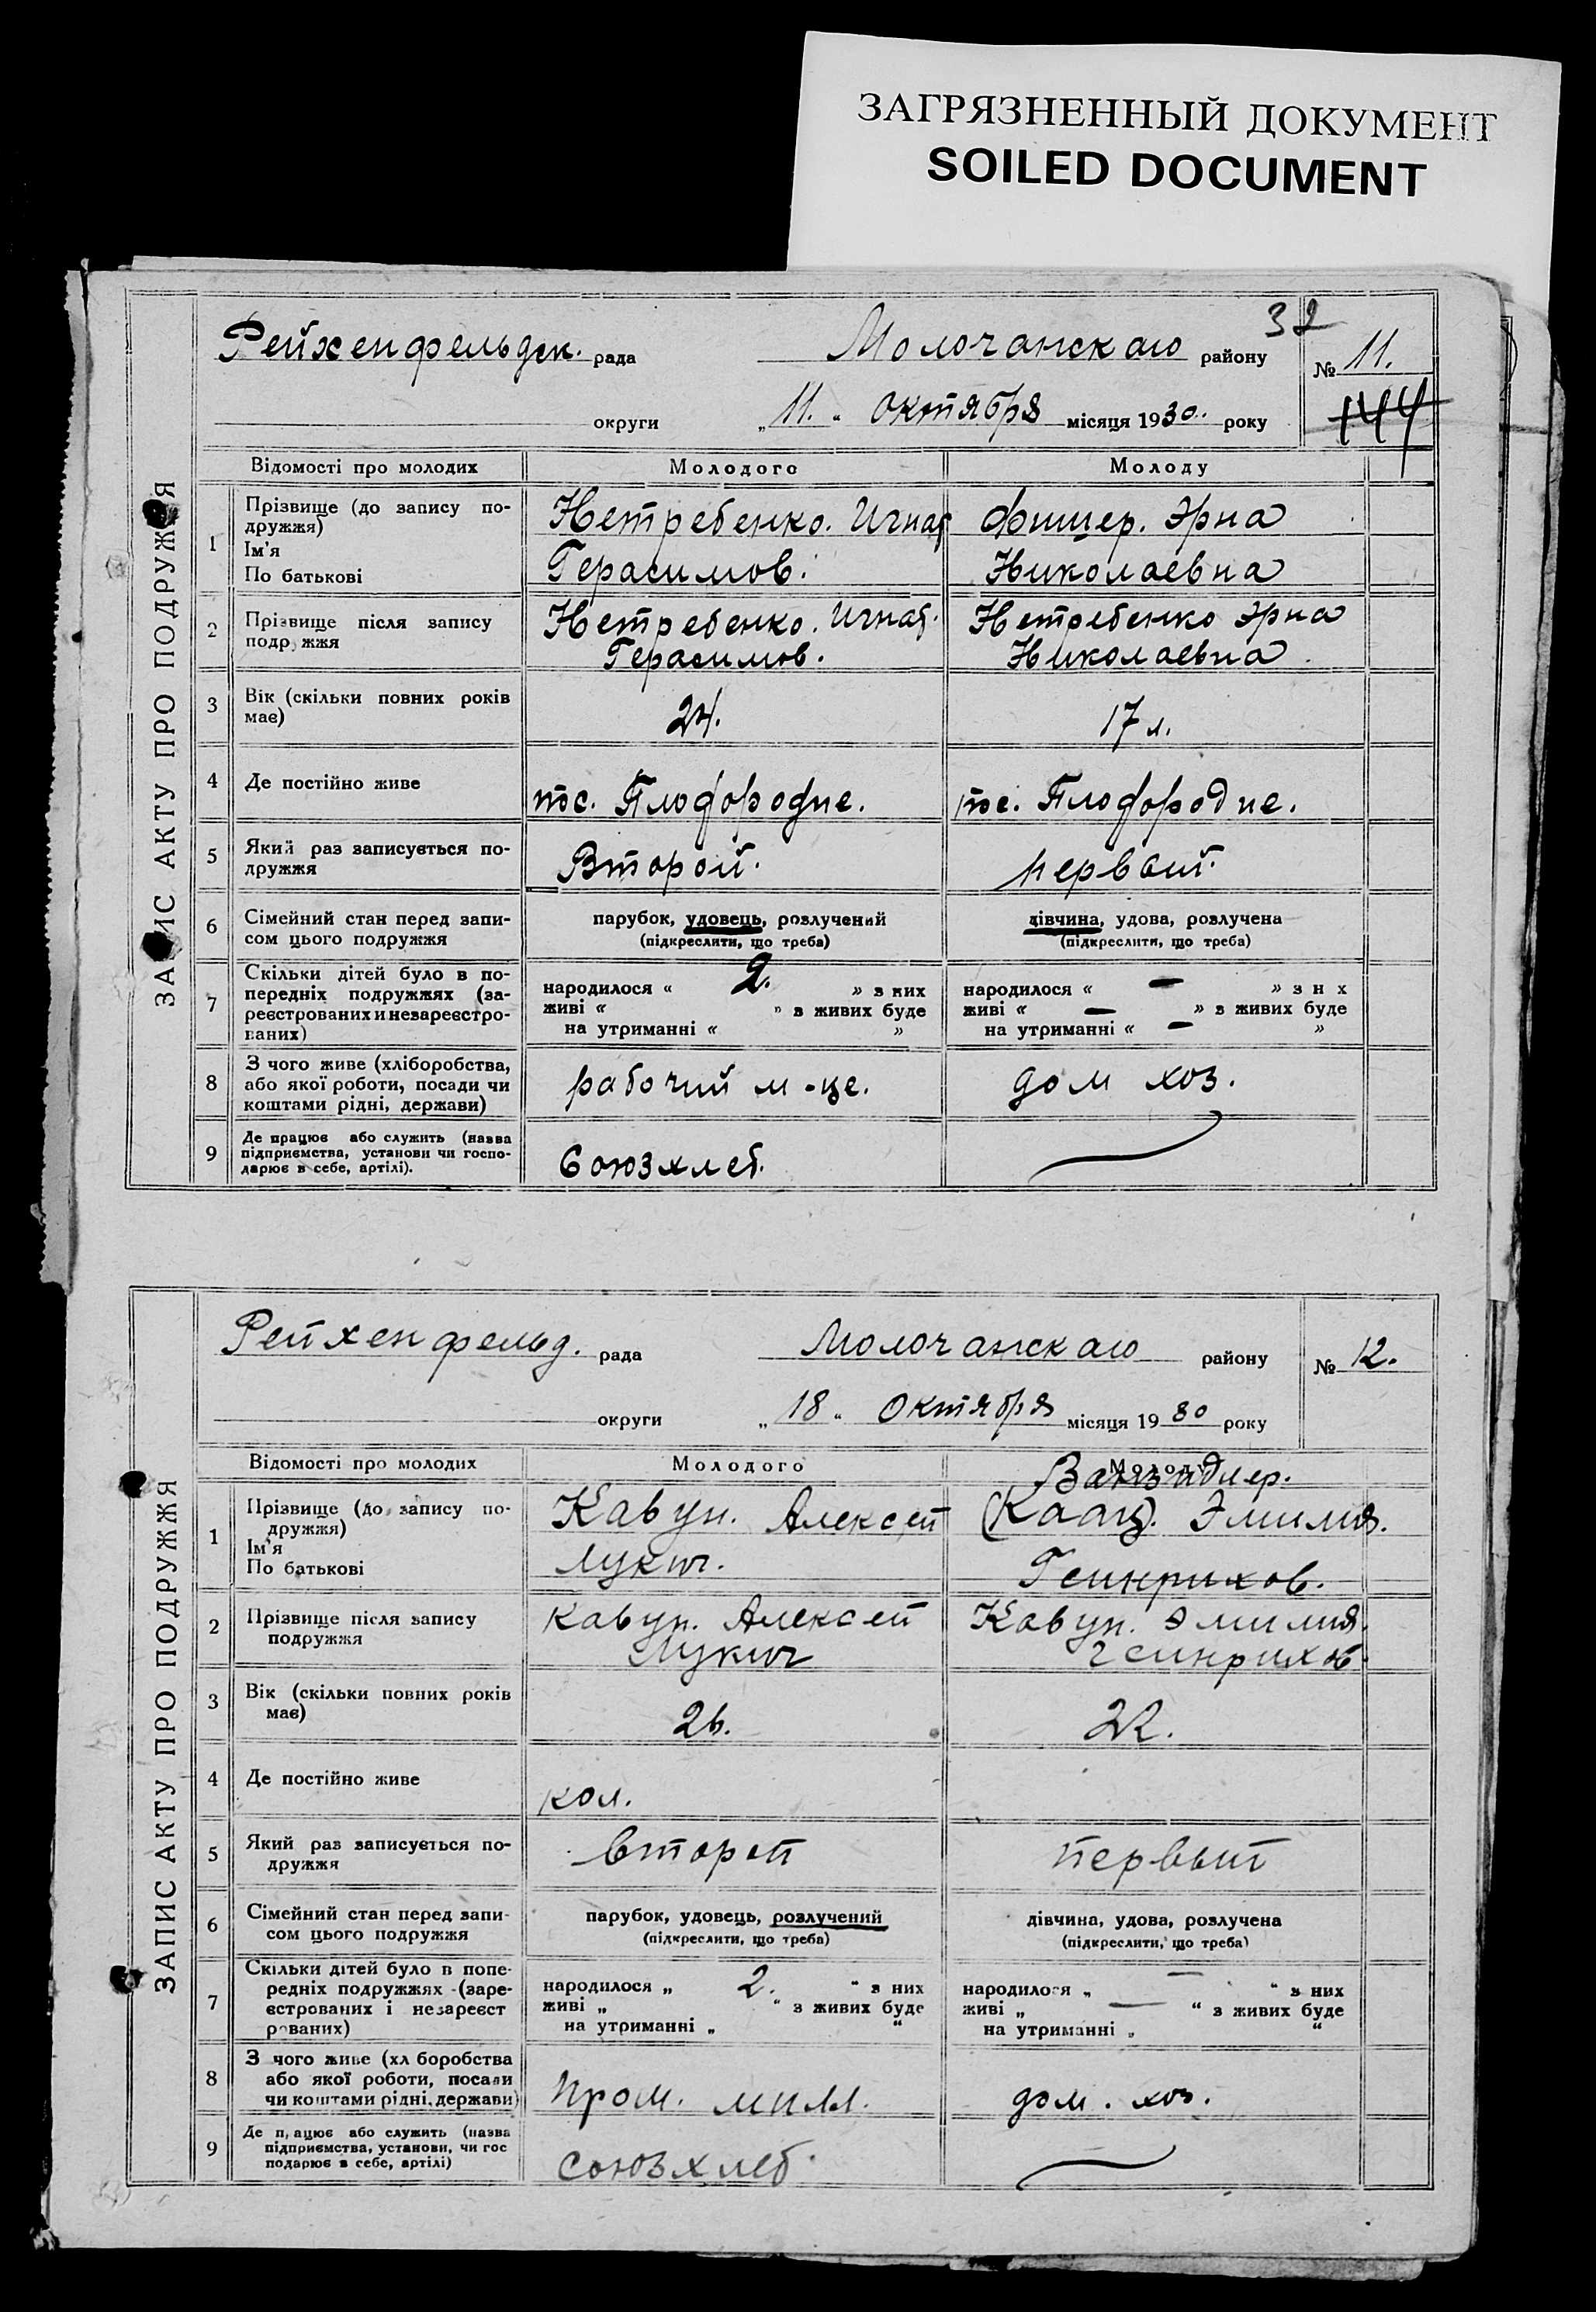 ЗАГРЯЗНЕННЫЙ ДОКУМЕНТ
SOILED DOCUMENT
32
Рейхенфельдск. рада Молочанскаго району № 11.
144
округи „11.“ октября місяця 1930. року
ЗАПИС АКТУ ПРО ПОДРУЖЖЯ
Відомості про молодих Молодого Молоду
1 Прізвище (до запису по-
дружжя)
Ім'я
По батькові
Нетребенко. Игнат
Герасимов.
Фишер. Эрна
Николаевна
2 Прізвище після запису
подружжя
Нетребенко. Игнат.
Герасимов.
Нетребенко Эрна
Николаевна
3 Вік (скільки повних років
має)
24. 17 л.
4 Де постійно живе
тс. Плодородие. тс. Плодородие.
5 Який раз записується по-
дружжя
Второй. первый.
6 Сімейний стан перед запи-
сом цього подружжя
парубок, удовець, розлучений
(підкреслити, що треба)
дівчина, удова, розлучена
(підкреслити, що треба)
7 Скільки дітей було в по-
передніх подружжях (за-
реєстрованих и незареєстро-
ваних)
народилося « 2. » з них
живі « » з живих буде
на утриманні « »
народилося « — » з н х
живі « — » з живих буде
на утриманні « — »
8 З чого живе (хліборобства,
або якої роботи, посади чи
коштами рідні, держави)
рабочий м-це. дом хоз.
9 Де працює або служить (назва
підприємства, установи чи госпо-
дарює в себе, артілі).
Союзхлеб.
Рейхенфельд. рада Молочанскаго району № 12.
округи „18“ октября місяця 1930 року
ЗАПИС АКТУ ПРО ПОДРУЖЖЯ
Відомості про молодих Молодого Молоду
1 Прізвище (до запису по-
дружжя)
Ім'я
По батькові
Кавун. Алексей
Лукич.
(Каац). Эмилия.
Генрихов.
2 Прізвище після запису
подружжя
Кавун. Алексей
Лукич
Кавун. Эмилия.
Генрихов.
3 Вік (скільки повних років
має)
26. 22.
4 Де постійно живе
кол.
5 Який раз записується по-
дружжя
второй первый
6 Сімейний стан перед запи-
сом цього подружжя
парубок, удовець, розлучений
(підкреслити, що треба)
дівчина, удова, розлучена
(підкреслити, що треба)
7 Скільки дітей було в попе-
редніх подружжях (заре-
єстрованих і незареєст
рованих)
народилося „ 2. “ з них
живі „ “ з живих буде
на утриманні „ “
народилося „ — “ з них
живі „ — “ з живих буде
на утриманні „ “
8 З чого живе (хл боробства
або якої роботи, посади
чи коштами рідні, держави)
пром. дом. хоз.
9 Де працює або служить (назва
підприємства, установи, чи гос
подарює в себе, артілі)
союзхлеб.